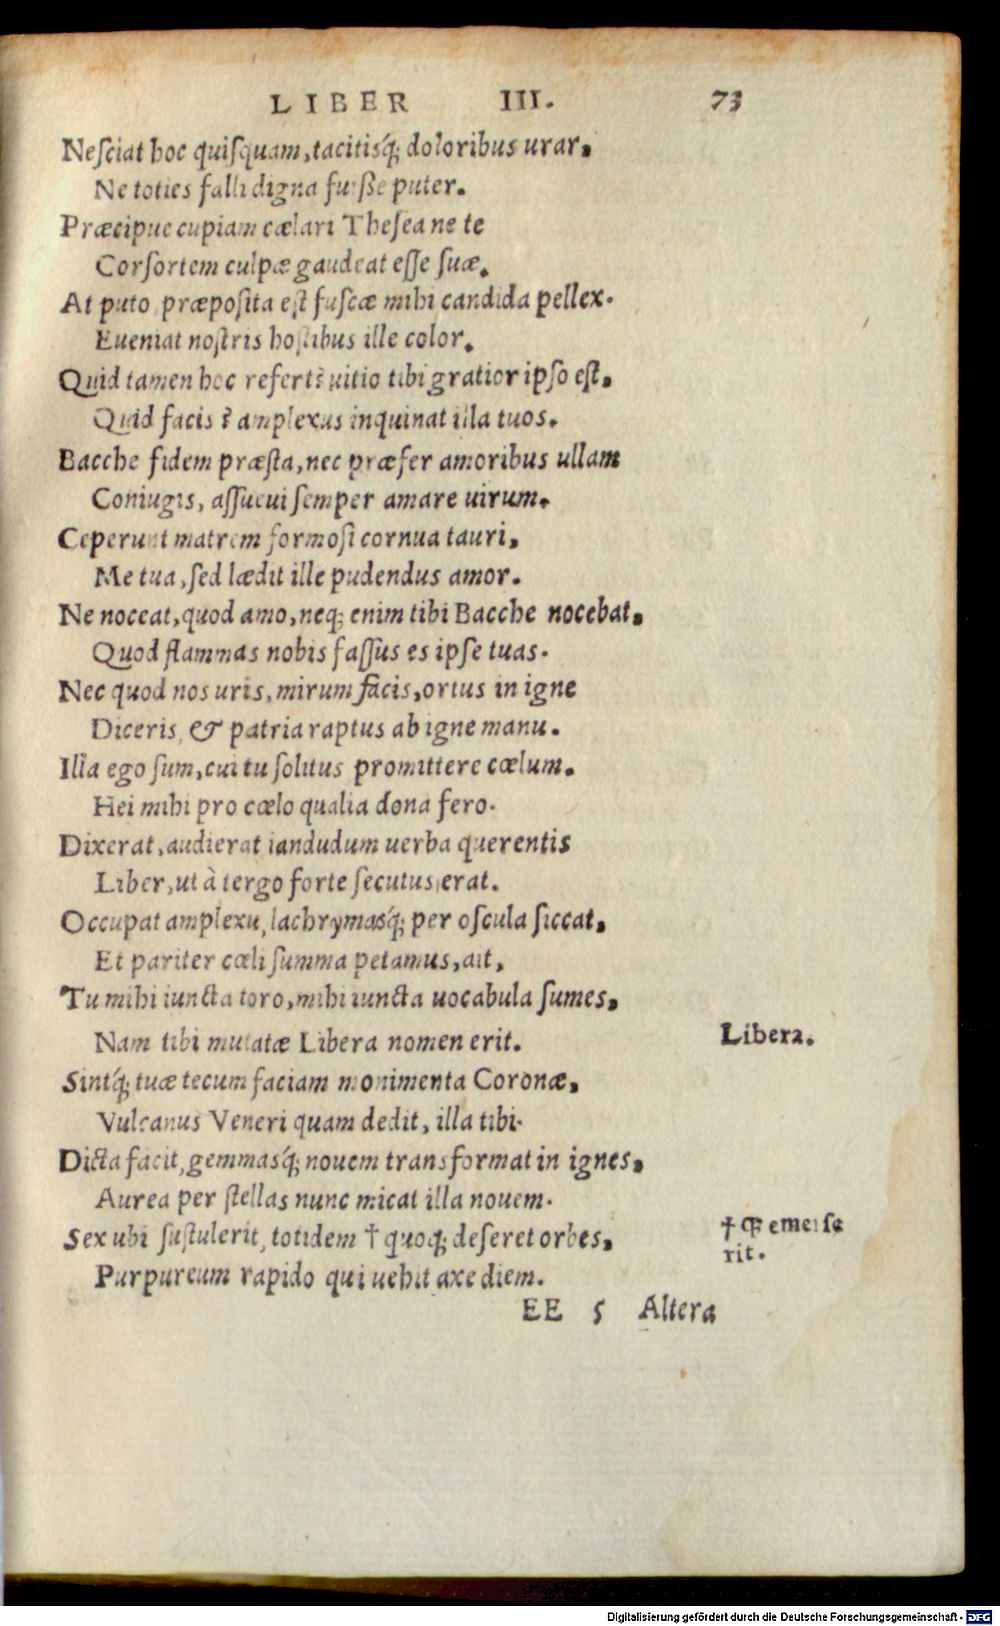 LIBER III. 73
Neſciat hoc quiſquam, tacitisq́; doloribus urar,
Ne toties falli digna fuiſſe puter.
Præcipue cupiam cælari Theſea ne te
Corſortem culpæ gaudeat eſſe ſuæ,
At puto præpoſita eſt fuſcæ mihi candida pellex.
Eueniat noſtris hoſtibus ille color,
Quid tamen hoc refert? uitio tibi gratior ipſo eſt,
Quid facis? amplexus inquinat illa tuos.
Bacche fidem præſta, nec præfer amoribus ullam
Coniugis, aſſueui ſemper amare uirum.
Ceperunt matrem formoſi cornua tauri,
Me tua, ſed lædit ille pudendus amor.
Ne noceat, quod amo, neq; enim tibi Bacche nocebat,
Quod flammas nobis faſſus es ipſe tuas.
Nec quod nos uris, mirum facis, ortus in igne
Diceris, & patria raptus ab igne manu.
Illa ego ſum, cui tu ſolitus promittere cœlum.
Hei mihi pro cœlo qualia dona fero.
Dixerat, audierat iandudum uerba querentis
Liber, ut à tergo forte ſecutus erat.
Occupat amplexu, lachrymasq́; per oſcula ſiccat,
Et pariter cœli ſumma petamus, ait,
Tu mihi iuncta toro, mihi iuncta uocabula ſumes,
Nam tibi mutatæ Libera nomen erit. Libera.
Sintq́; tuæ tecum faciam monimenta Coronæ,
Vulcanus Veneri quam dedit, illa tibi.
Dicta facit, gemmasq́; nouem transformat in ignes,
Aurea per ſtellas nunc micat illa nouem.
Sex ubi ſuſtulerit, totidem † quoq; deſeret orbes, † q; emerſe
rit.
Purpureum rapido qui uehit axe diem.
EE 5 Altera
Digitalisierung gefördert durch die Deutsche Forschungsgemeinschaft - DFG